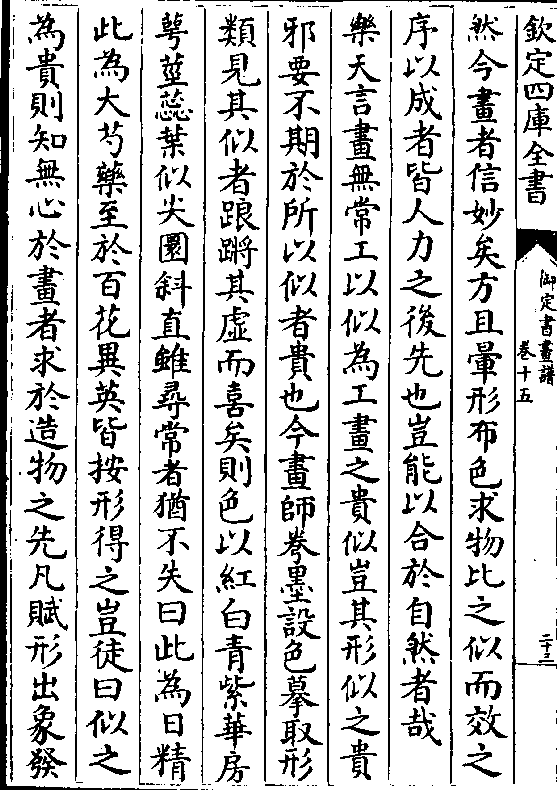 欽定四庫全書
御定書畫譜
卷十五
二十三
然今畫者信妙矣方且暈形布色求物比之似而效之
序以成者皆人力之後先也豈能以合於自然者哉
樂天言畫無常工以似為工畫之貴似豈其形似之貴
邪要不期於所以似者貴也今畫師卷墨設色摹取形
類見其似者踉蹡其虛而喜矣則色以紅白青紫華房
萼莖蕊葉似尖圜斜直雖尋常者猶不失曰此為日精
此為大芍藥至於百花異英皆按形得之豈徒曰似之
為貴則知無心於畫者求於造物之先凡賦形出象發